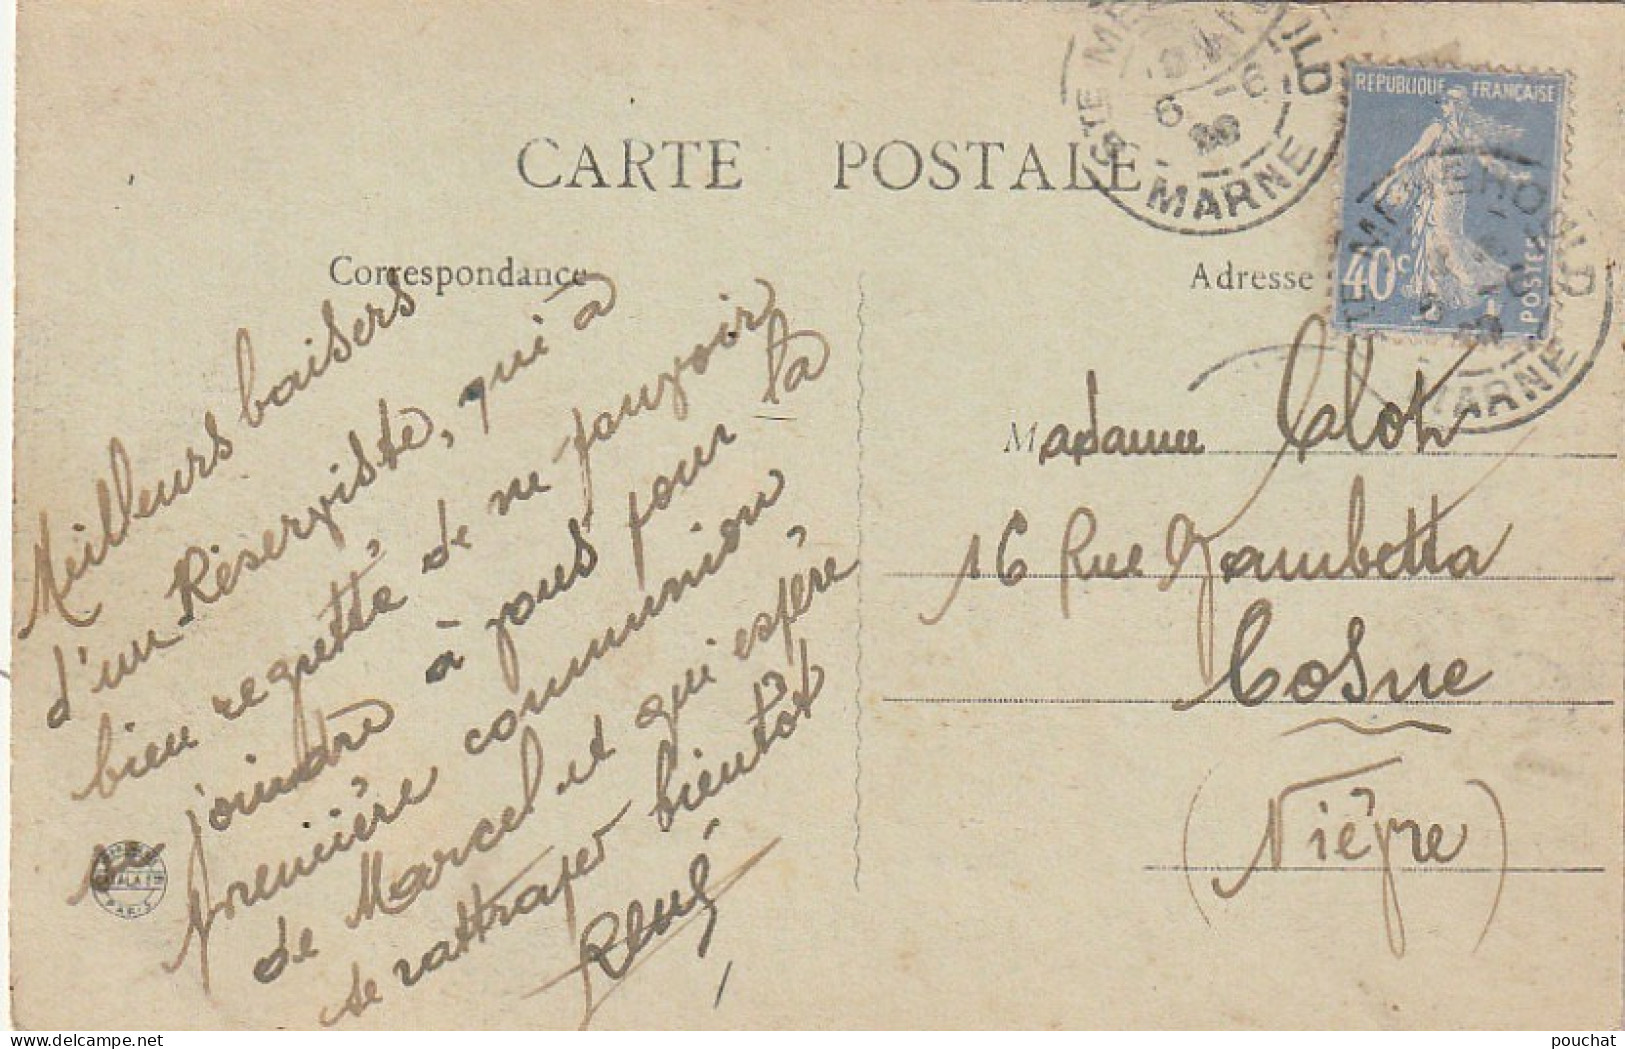 CARTE POSTALE
Correspondance
Adresse
Meilleurs baisers
d'un Réserviste, qui à
bien regretté de ne pouvoir
se joindre à vous pour la
première communion
de Marcel et qui espère
se rattraper bientôt
René
Madame Clot
16 Rue Gambetta
Cosne
(Nièvre)
STE MENEHOULD
6 -6
MARNE
REPUBLIQUE FRANÇAISE
40c
POSTES
MENEHOULD
MARNE
PARIS
delcampe.net
pouchat